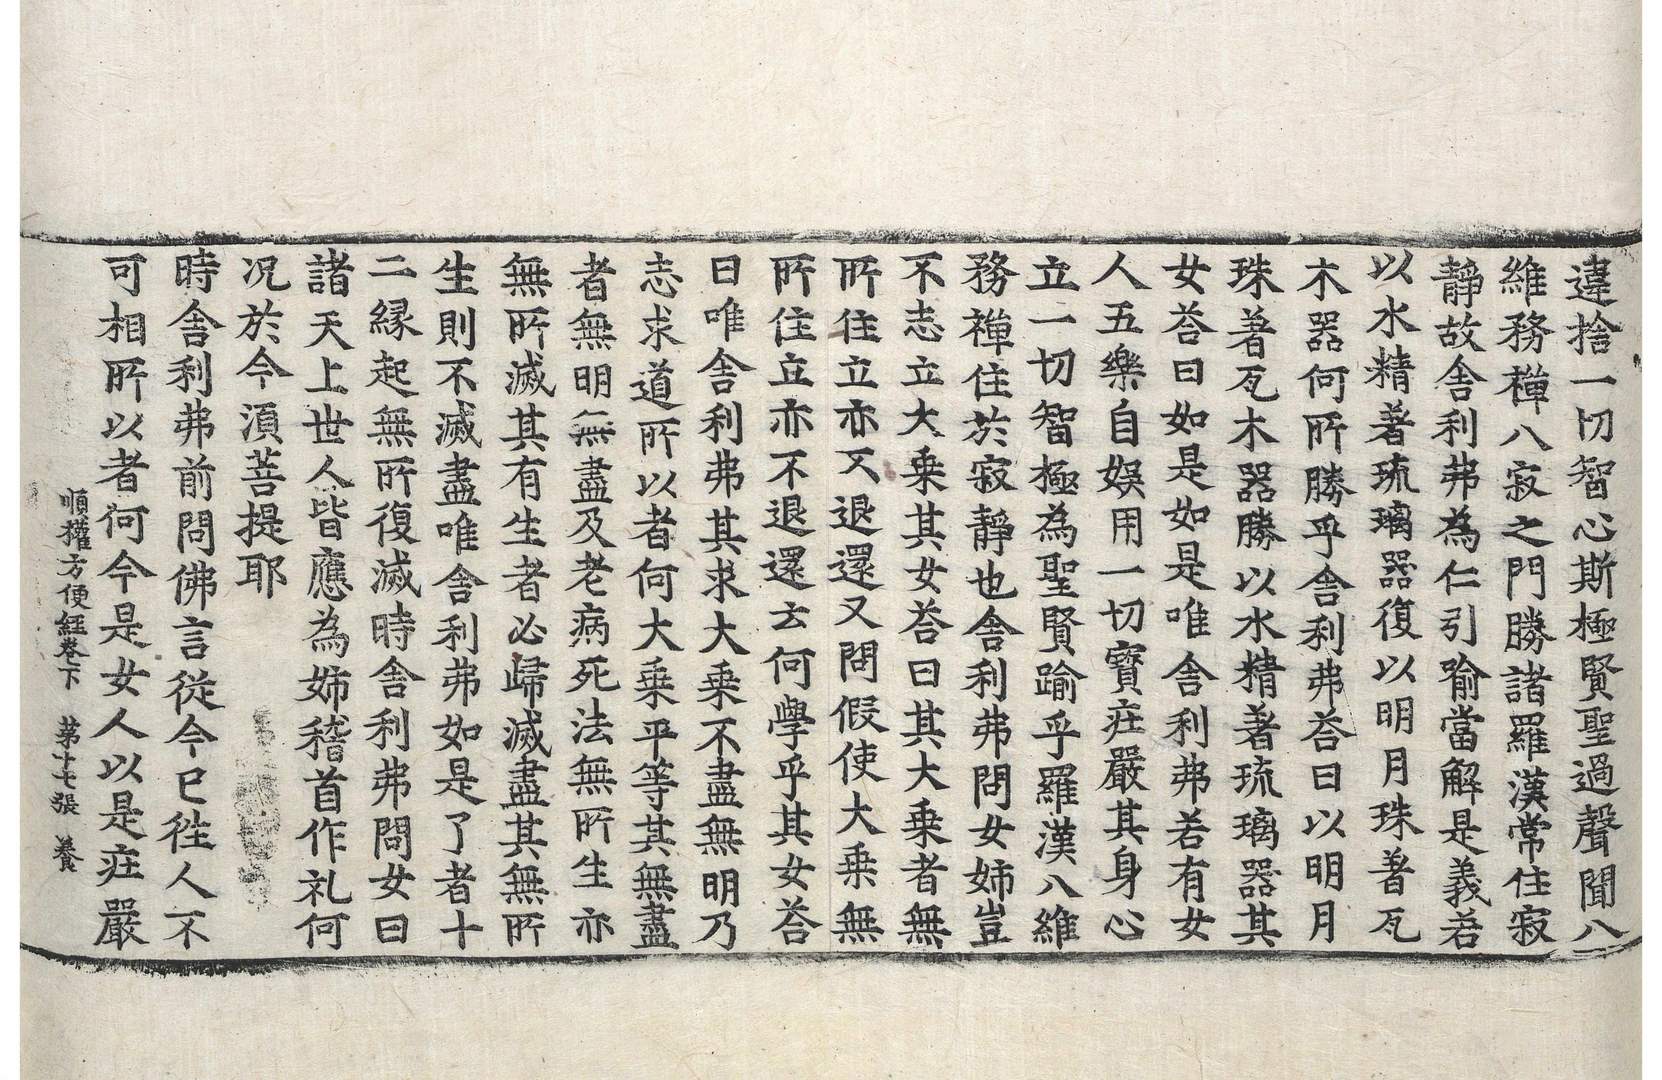 違捨一切智心斯極賢聖過聲聞八
維務禪八寂之門勝諸羅漢常住寂
靜故舍利弗為仁引喻當解是義若
以水精著琉璃器復以明月珠著瓦
木器何所勝乎舍利弗荅曰以明月
珠著瓦木器勝以水精著琉璃器其
女荅曰如是如是唯舍利弗若有女
人五樂自娛用一切寶莊嚴其身心
立一切智極為聖賢踰乎羅漢八維
務禪住於寂靜也舍利弗問女姉豈
不志立大乗其女荅曰其大乗者無
所住立亦不退還又問假使大乗無
所住立亦不退還云何學乎其女荅
曰唯舍利弗其求大乗不盡無明乃
志求道所以者何大乗平等其無盡
者無明無盡及老病死法無所生亦
無所滅其有生者必歸滅盡其無所
生則不滅盡唯舍利弗如是了者十
二縁起無所復滅時舍利弗問女曰
諸天上世人皆應為姉稽首作礼何
况於今湏菩提耶
時舍利弗前問佛言從今已往人不
可相所以者何今是女人以是莊嚴
順權方便經卷下　第十七張　養